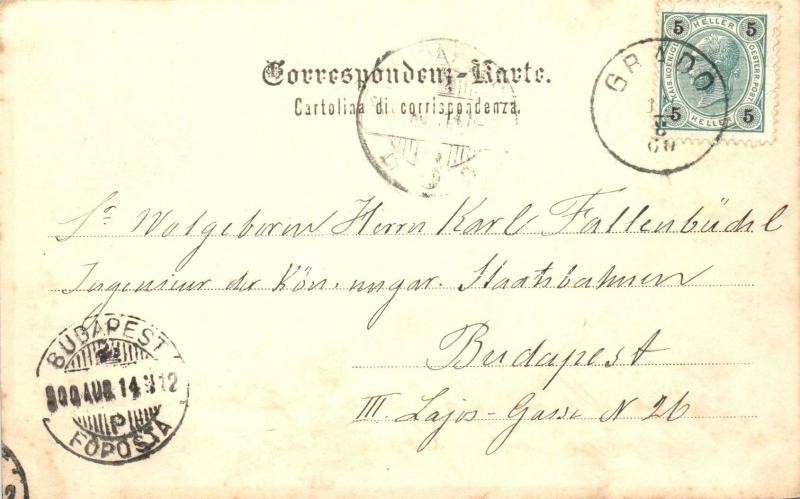 5 HELLER 5
KAIS. KOENIGL. OESTERR. POST.
5 HELLER 5
GRADO
Correspondenz-Karte.
Cartolina di corrispondenza.
Sr Wolgeborn Herrn Karl Fallenbüchl
Ingenieur der Kön. ungar. Staatsbahnen
Budapest
III. Lajos-Gasse N 26
BUDAPEST
900 AUG. 14
P
FŐPOSTA